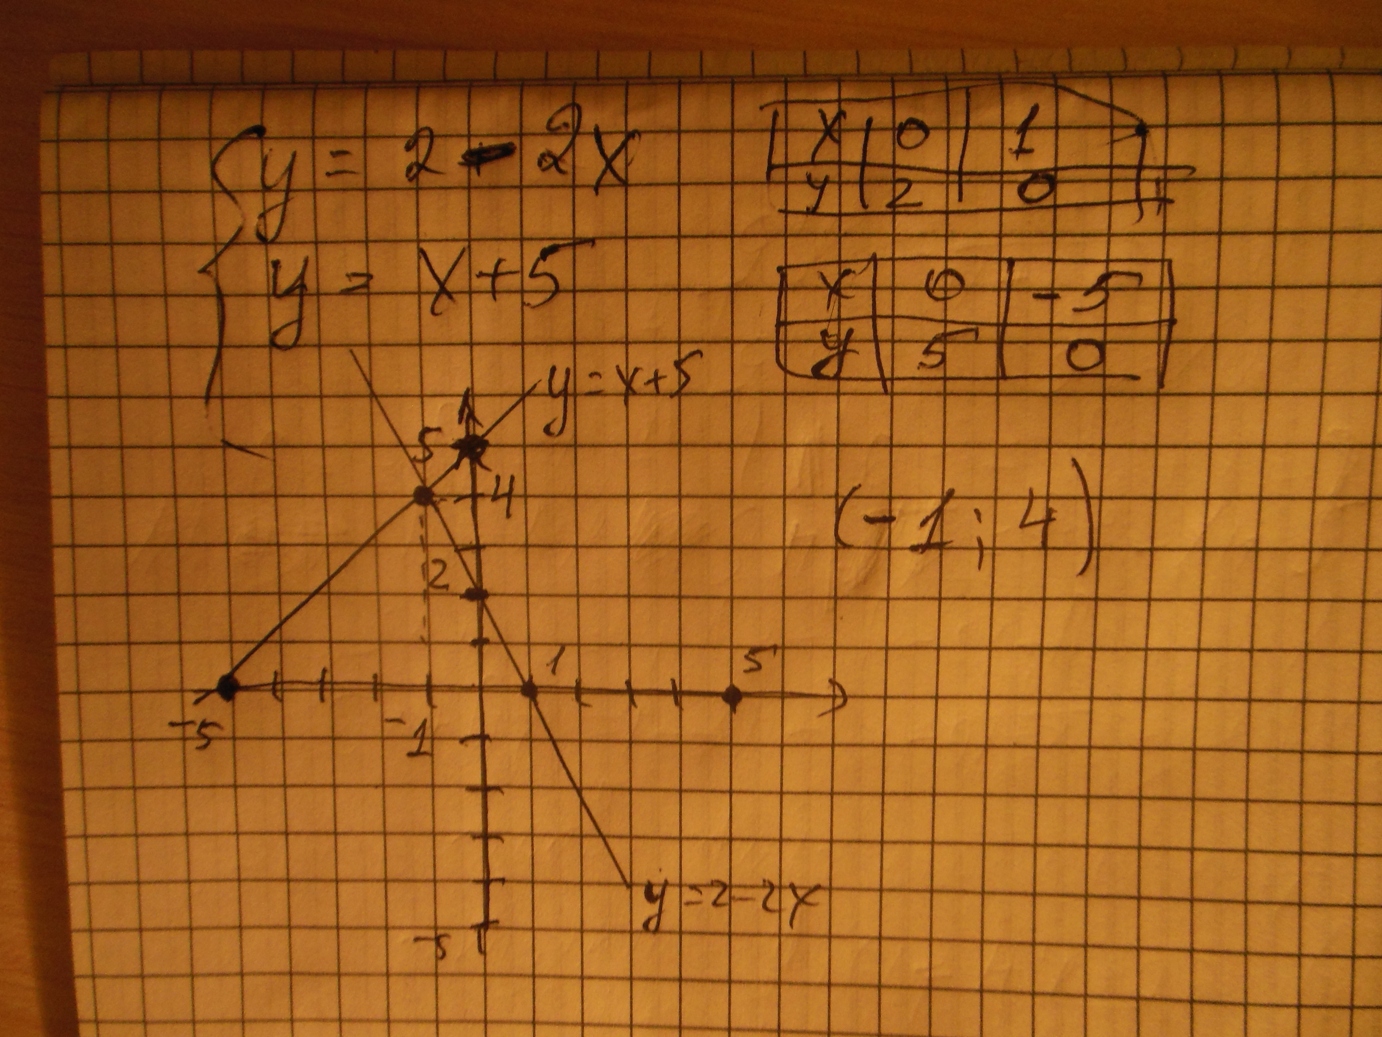 y = 2 - 2x
x 0 1
y 2 0
y = x+5
x 0 -5
y 5 0
y = x+5
5
4
(-1; 4)
2
1
5
-5
-1
y = 2-2x
-5